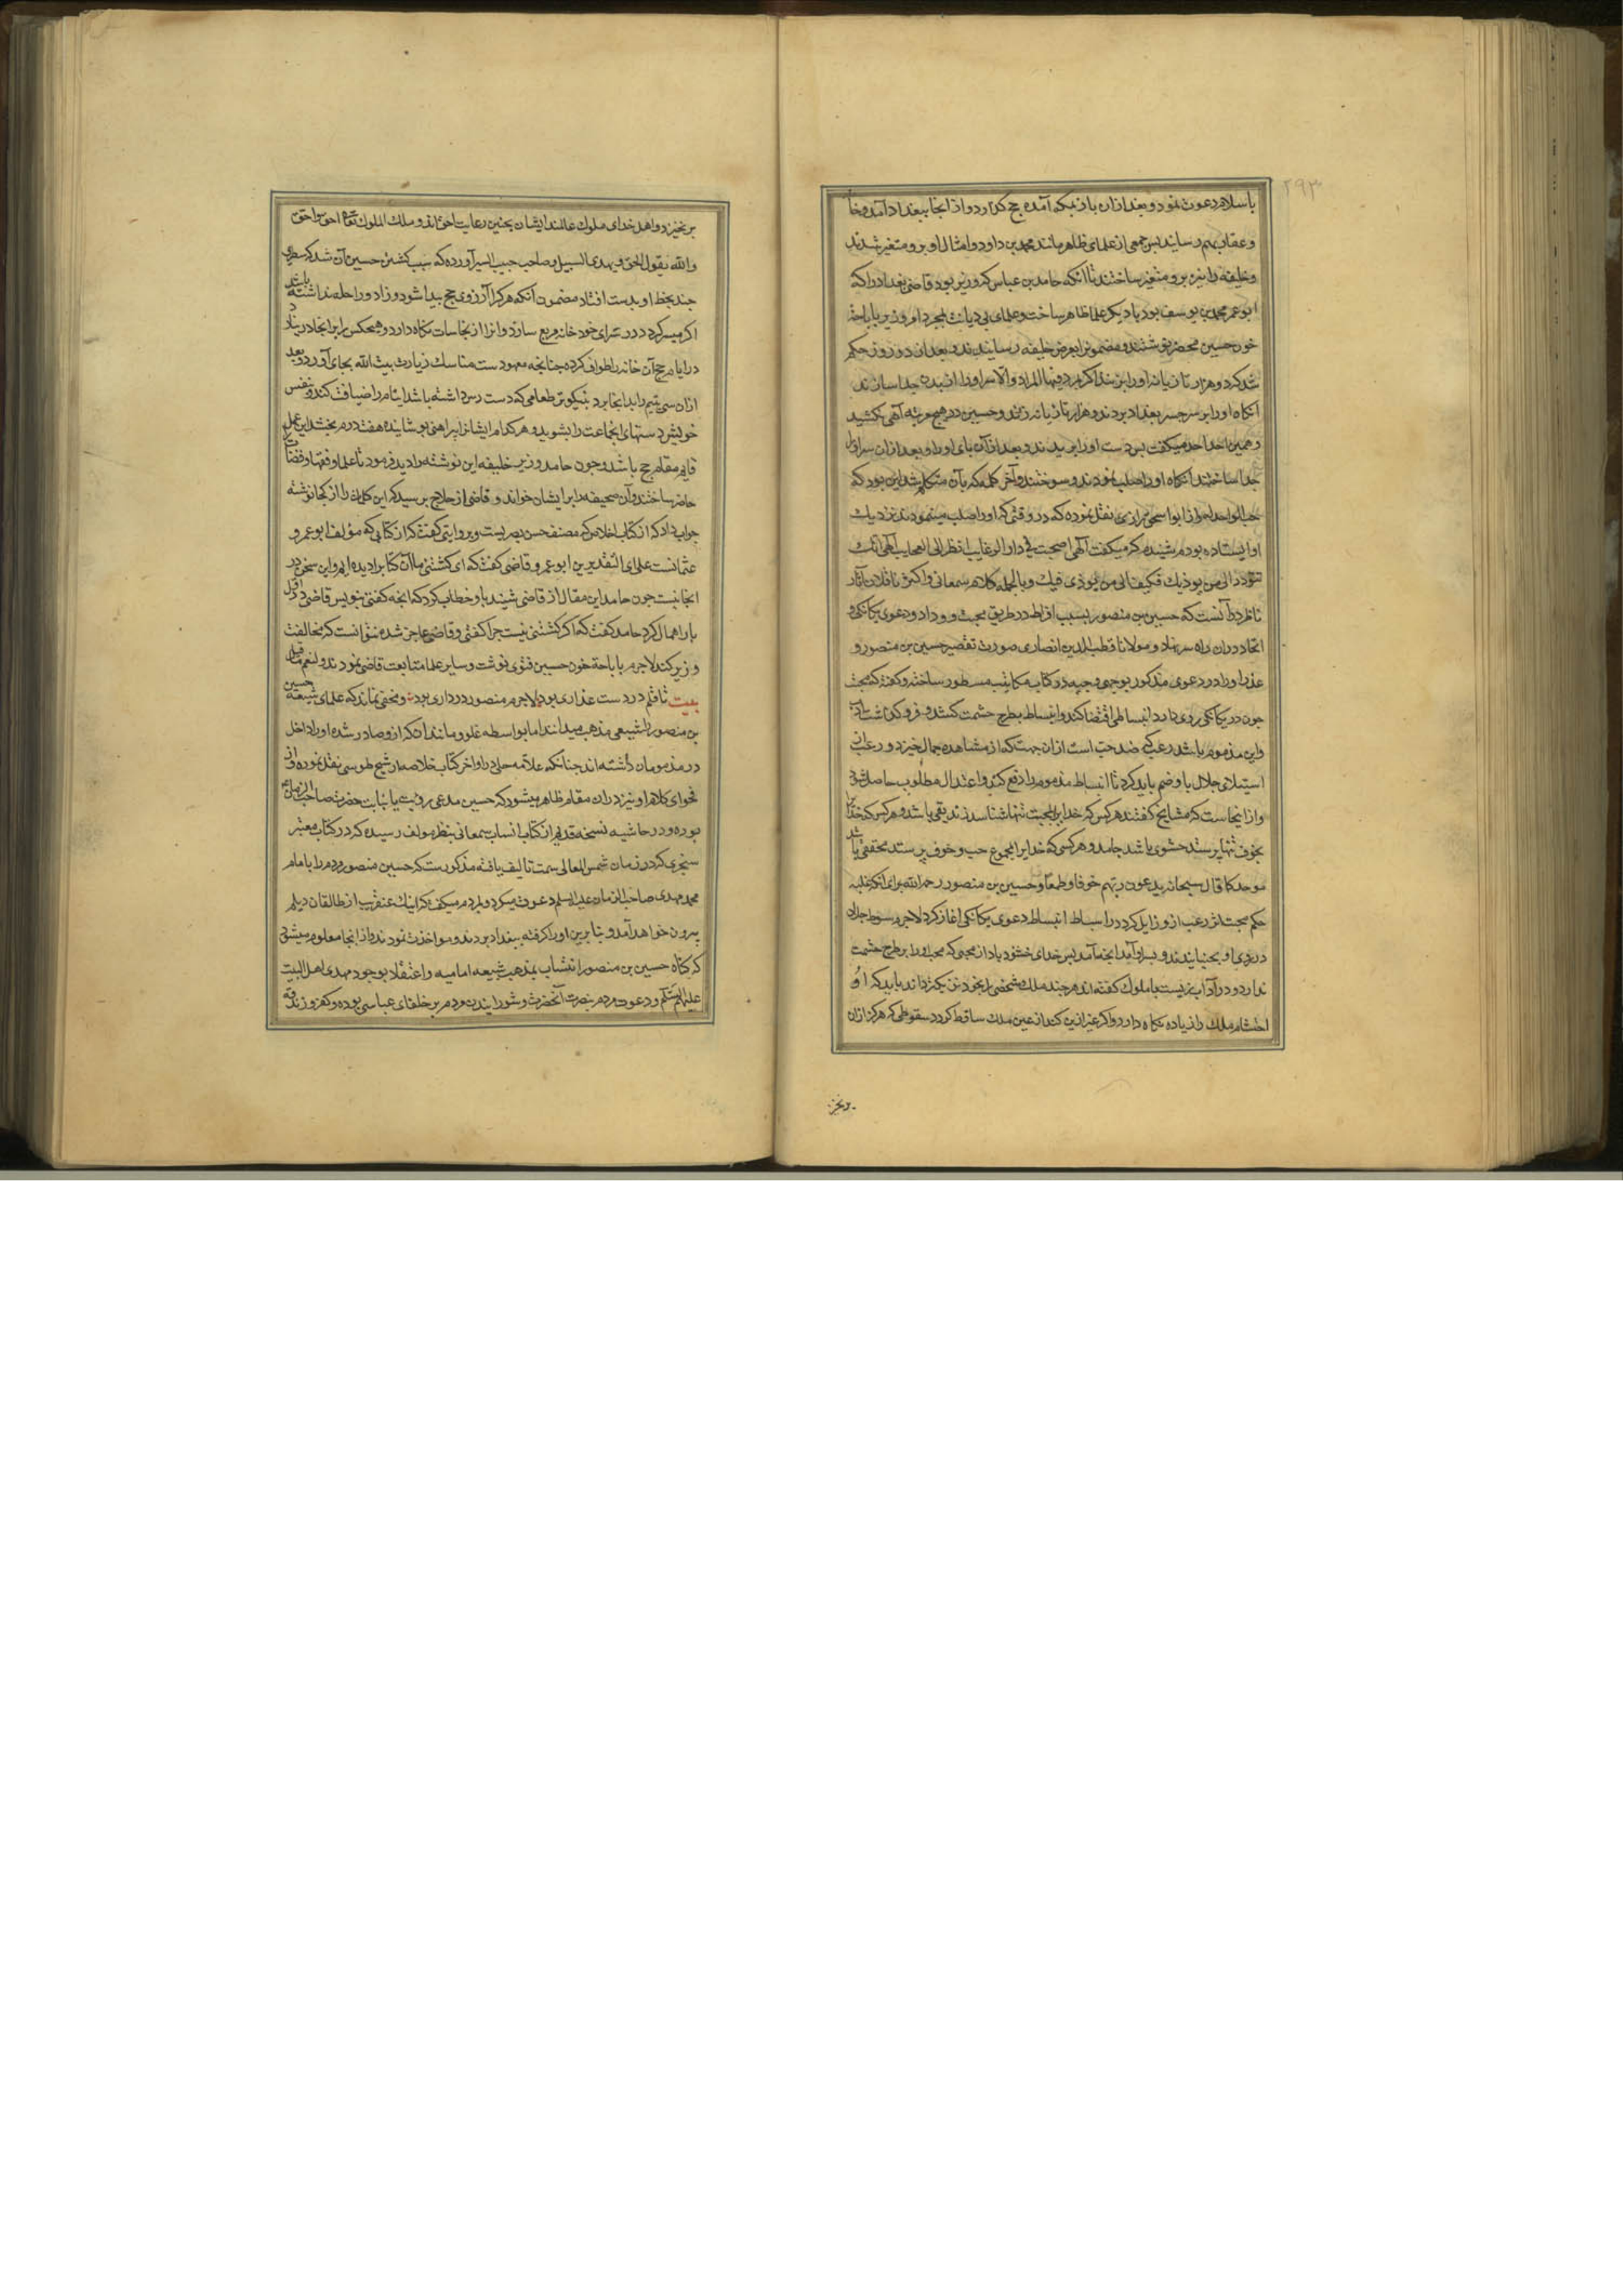 ۲۹۳
باسلام دعوت نمود و بعد ازان باز بمکه آمده حج کزارد و از انجا ببغداد آمد و خا
وعقاب بهم رسانید بس جمعی از علمای ظاهر مانند محمد بن داود و امثال او برو متغیر شدند
وخلیفه را نیز برو متغیر ساختند تا انکه حامد بن عباس که وزیر بود قاضی بغداد را که
ابو عمر محمد بن یوسف بود با دیکر علما ظاهر ساخت و علمای بی دیانت بمجرد امر وزیر باباحت
خون حسین محضر نوشتند و مضمونرا بعرض خلیفه رسانیدند و بعد از دو روز حکم
شد که دو هزار تازیانه او را بزنند اکر مرد فبها المراد والا سر او را از بدن جدا سازند
انکاه او را بر سر جسر بغداد بردند و هزار تازیانه زدند و حسین در هیچ مرتبه آهی نکشید
و همین احد احد میکفت بس دست او را بریدند و بعد ازان بای او را و بعد ازان سر او را
جدا ساختند انکاه او را صلب نمودند و سوختند و آخر کلمه که بآن متکلم شد این بود که
حب الواحد افراد الواحد و از ابو اسحق رازی نقل نموده که در وقتی که او را صلب مینمودند نزدیک
او ایستاده بودم شنیدم که میکفت آلهی اصبحت فی دار الرغایب انظر الی العجایب آلهی انک
تتودد الی من یوذیک فکیف الی من یوذی فیک و بالجمله کلام سمعانی و اکثر ناقلان آثار
ناظر در آنست که حسین بن منصور بسبب افراط در طریق محبت و وداد و دعوی یکانکی و
اتحاد دران راه سر نهاد و مولانا قطب الدین انصاری صورت تقصیر حسین بن منصور و
عذر او را در دعوی مذکور بوجهی وجیه در کتاب مکاتیب مسطور ساخته و کفته که محبت
جون در یکانکی روی دارد انبساطی اقتضا کند و انبساط بطرح حشمت کشد و فرو کذاشت ادب
واین مذموم باشد رعب کی ضد حب است ازان جهت که از مشاهده جمال خیزد و رعب از
استیلای جلال باو ضم باید کرد تا انبساط مذموم را دفع کند و اعتدال مطلوب حاصل شود
و از اینجاست که مشایخ کفتند هر کس که خدایرا بمحبت تنها شناسد زندیقی باشد و هر کس که خدایرا
بخوف تنها پرستد حشوی باشد جامد و هر کسی که خدایرا بمجموع حب و خوف پرستد محققی باشد
موحد کما قال سبحانه یدعون ربهم خوفا و طمعا و حسین بن منصور رحمه الله برای انکه غلبه
حکم محبت اثر رعب ازو زایل کرد در بساط انبساط دعوی یکانکی اغاز کرد لاجرم سوط جلال
در روی او بجنبانیدند و بسر او آمد انچه آمد بس خدای خشنود باد از محبی که محب او را بر طرح حشمت
ندارد و در آداب زیست با ملوک کفته اند هر چند ملک شخصی را بخود نزدیکتر داند باید که او
احتشام ملک را زیاده نکاه دارد و اکر غیر ازین کند از عین ملک ساقط کردد سقوطی که هرکز ازان
برنخیز
برنخیزد و اهل خدای ملوک عالمند ایشان بچنین رعایت احق اند و ملک الملوک تعالی احق و احق
والله یقول الحق و یهدی السبیل و صاحب حبیب السیر آورده که سبب کشتن حسین آن شد که سطری
چند بخط او بدست افتاد مضمون آنکه هر کرا آرزوی حج پیدا شود و زاد و راحله نداشته باشد
اکر میسر کردد در سرای خود خانه مربع سازد و انرا از نجاسات نکاه دارد و هیچکس را بر انجا در نیارد
در ایام حج آن خانه را طواف کرده چنانچه معهودست مناسک زیارت بیت الله بجای آورد و بعد
ازان سی یتیم را بدانجا برد بنیکوتر طعامی که دست رس داشته باشد ایتام را ضیافت کند و بنفس
خویش دستهای انجماعت را بشوید و هر کدام ایشانرا پیراهنی پوشانیده هفت درم بخشد این عمل
قایم مقام حج باشد و چون حامد وزیر خلیفه این نوشته را دید فرمود تا علما و فقها و قضات
حاضر ساختند و آن صحیفه را بر ایشان خواند و قاضی از حلاج پرسید که این کلمات را از کجا نوشته
جواب داد که از کتاب اخلاص که مصنف حسن بصریست و بروایتی کفت که از کتابی که مؤلف ابو عمرو
عثمانست علی ای التقدیرین ابو عمرو قاضی کفت که ای کشتنی ما آن کتابرا دیده ایم و این سخن در
انجا نیست چون حامد این مقال از قاضی شنید باو خطاب کرد که انچه کفتی بنویس قاضی در اول
بار اهمال کرد حامد کفت که اکر کشتنی نیست چرا کفتی و قاضی عاجز شده نتوانست که مخالفت
وزیر کند لاجرم باباحت خون حسین فتوی نوشت و سایر علما متابعت قاضی نمودند و لنعم ما قیل
بیت تا قلم در دست غداری بود لاجرم منصور در داری بود و مخفی نماند که علمای شیعه حسین
بن منصور را شیعی مذهب میدانند اما بواسطه غلو و مانند آن که ازو صادر شده او را داخل
در مذمومان داشته اند چنانکه علامه حلی در اواخر کتاب خلاصه از شیخ طوسی نقل نموده و از
فحوای کلام او نیز دران مقام ظاهر میشود که حسین مدعی رؤیت یا نیابت حضرت صاحب الزمان
بوده و در حاشیه نسخه قدیم از کتاب انساب سمعانی بنظر مولف رسیده که در کتاب معتبر
سنجری که در زمان شمس المعالی سمت تالیف یافته مذکورست که حسین منصور مردم را بامام
محمد مهدی صاحب الزمان علیه السلم دعوت میکرد و بمردم میکفت که اینک عنقریب از طالقان دیلم
بیرون خواهد آمد و بنا برین او را کرفته ببغداد بردند و مواخذت نمودند و از انجا معلوم میشود
که کناه حسین بن منصور انتساب بمذهب شیعه امامیه و اعتقاد بوجود مهدی اهل البیت
علیهم السلم و دعوت مردم بنصرت آنحضرت و شورانیدن مردم بر خلفای عباسی بوده و کفر و زندقه